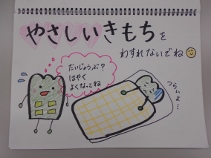 やさしいきもちを
わすれないでね
だいじょうぶ?
はやく
よくなってね
つらいよ…